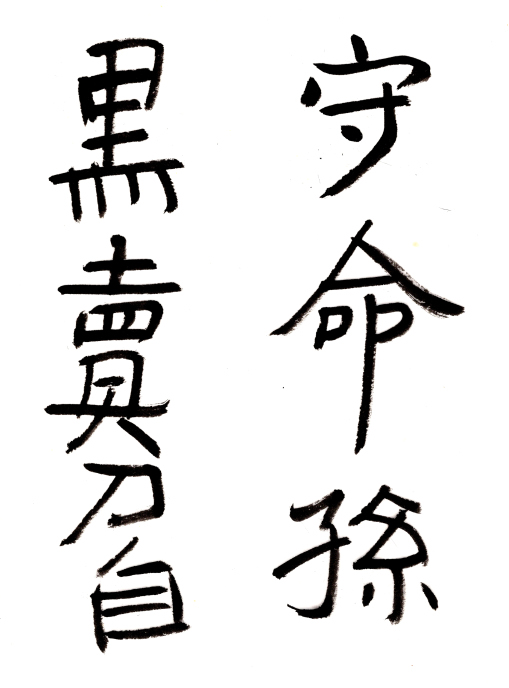 守命孫
黒賣刀自